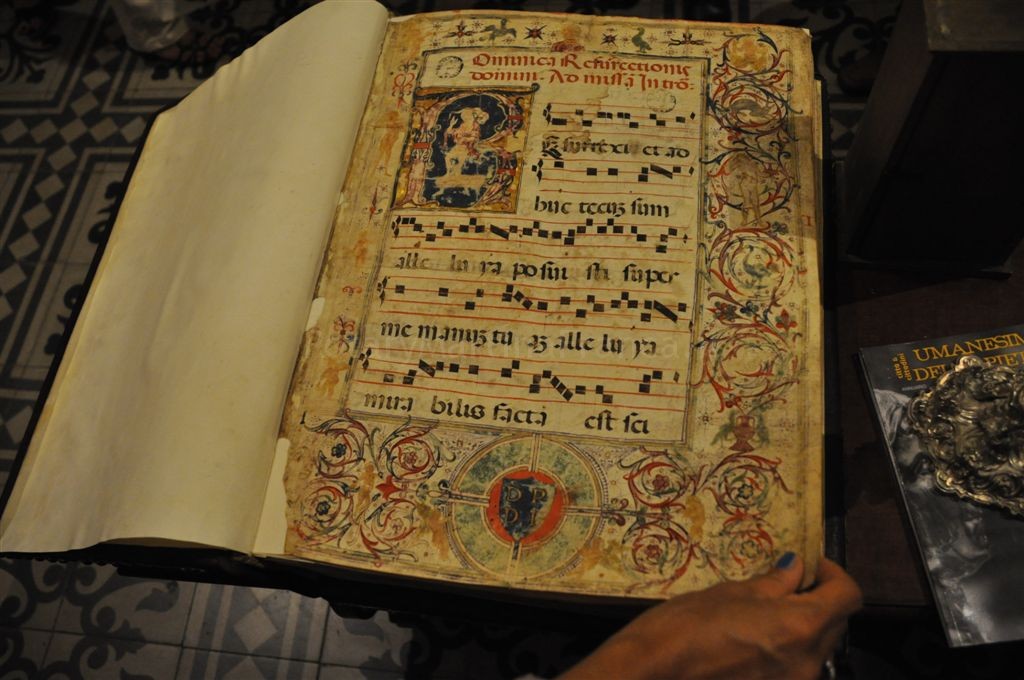 Dominica Resurrectionis
domini. Ad missā Intro:
Resurrexi et ad
huc tecuȝ sum
alle lu ya posui sti super
me manuȝ tu aȝ alle lu ya
mira bilis facta est sci
D P
D I
UMANESIM